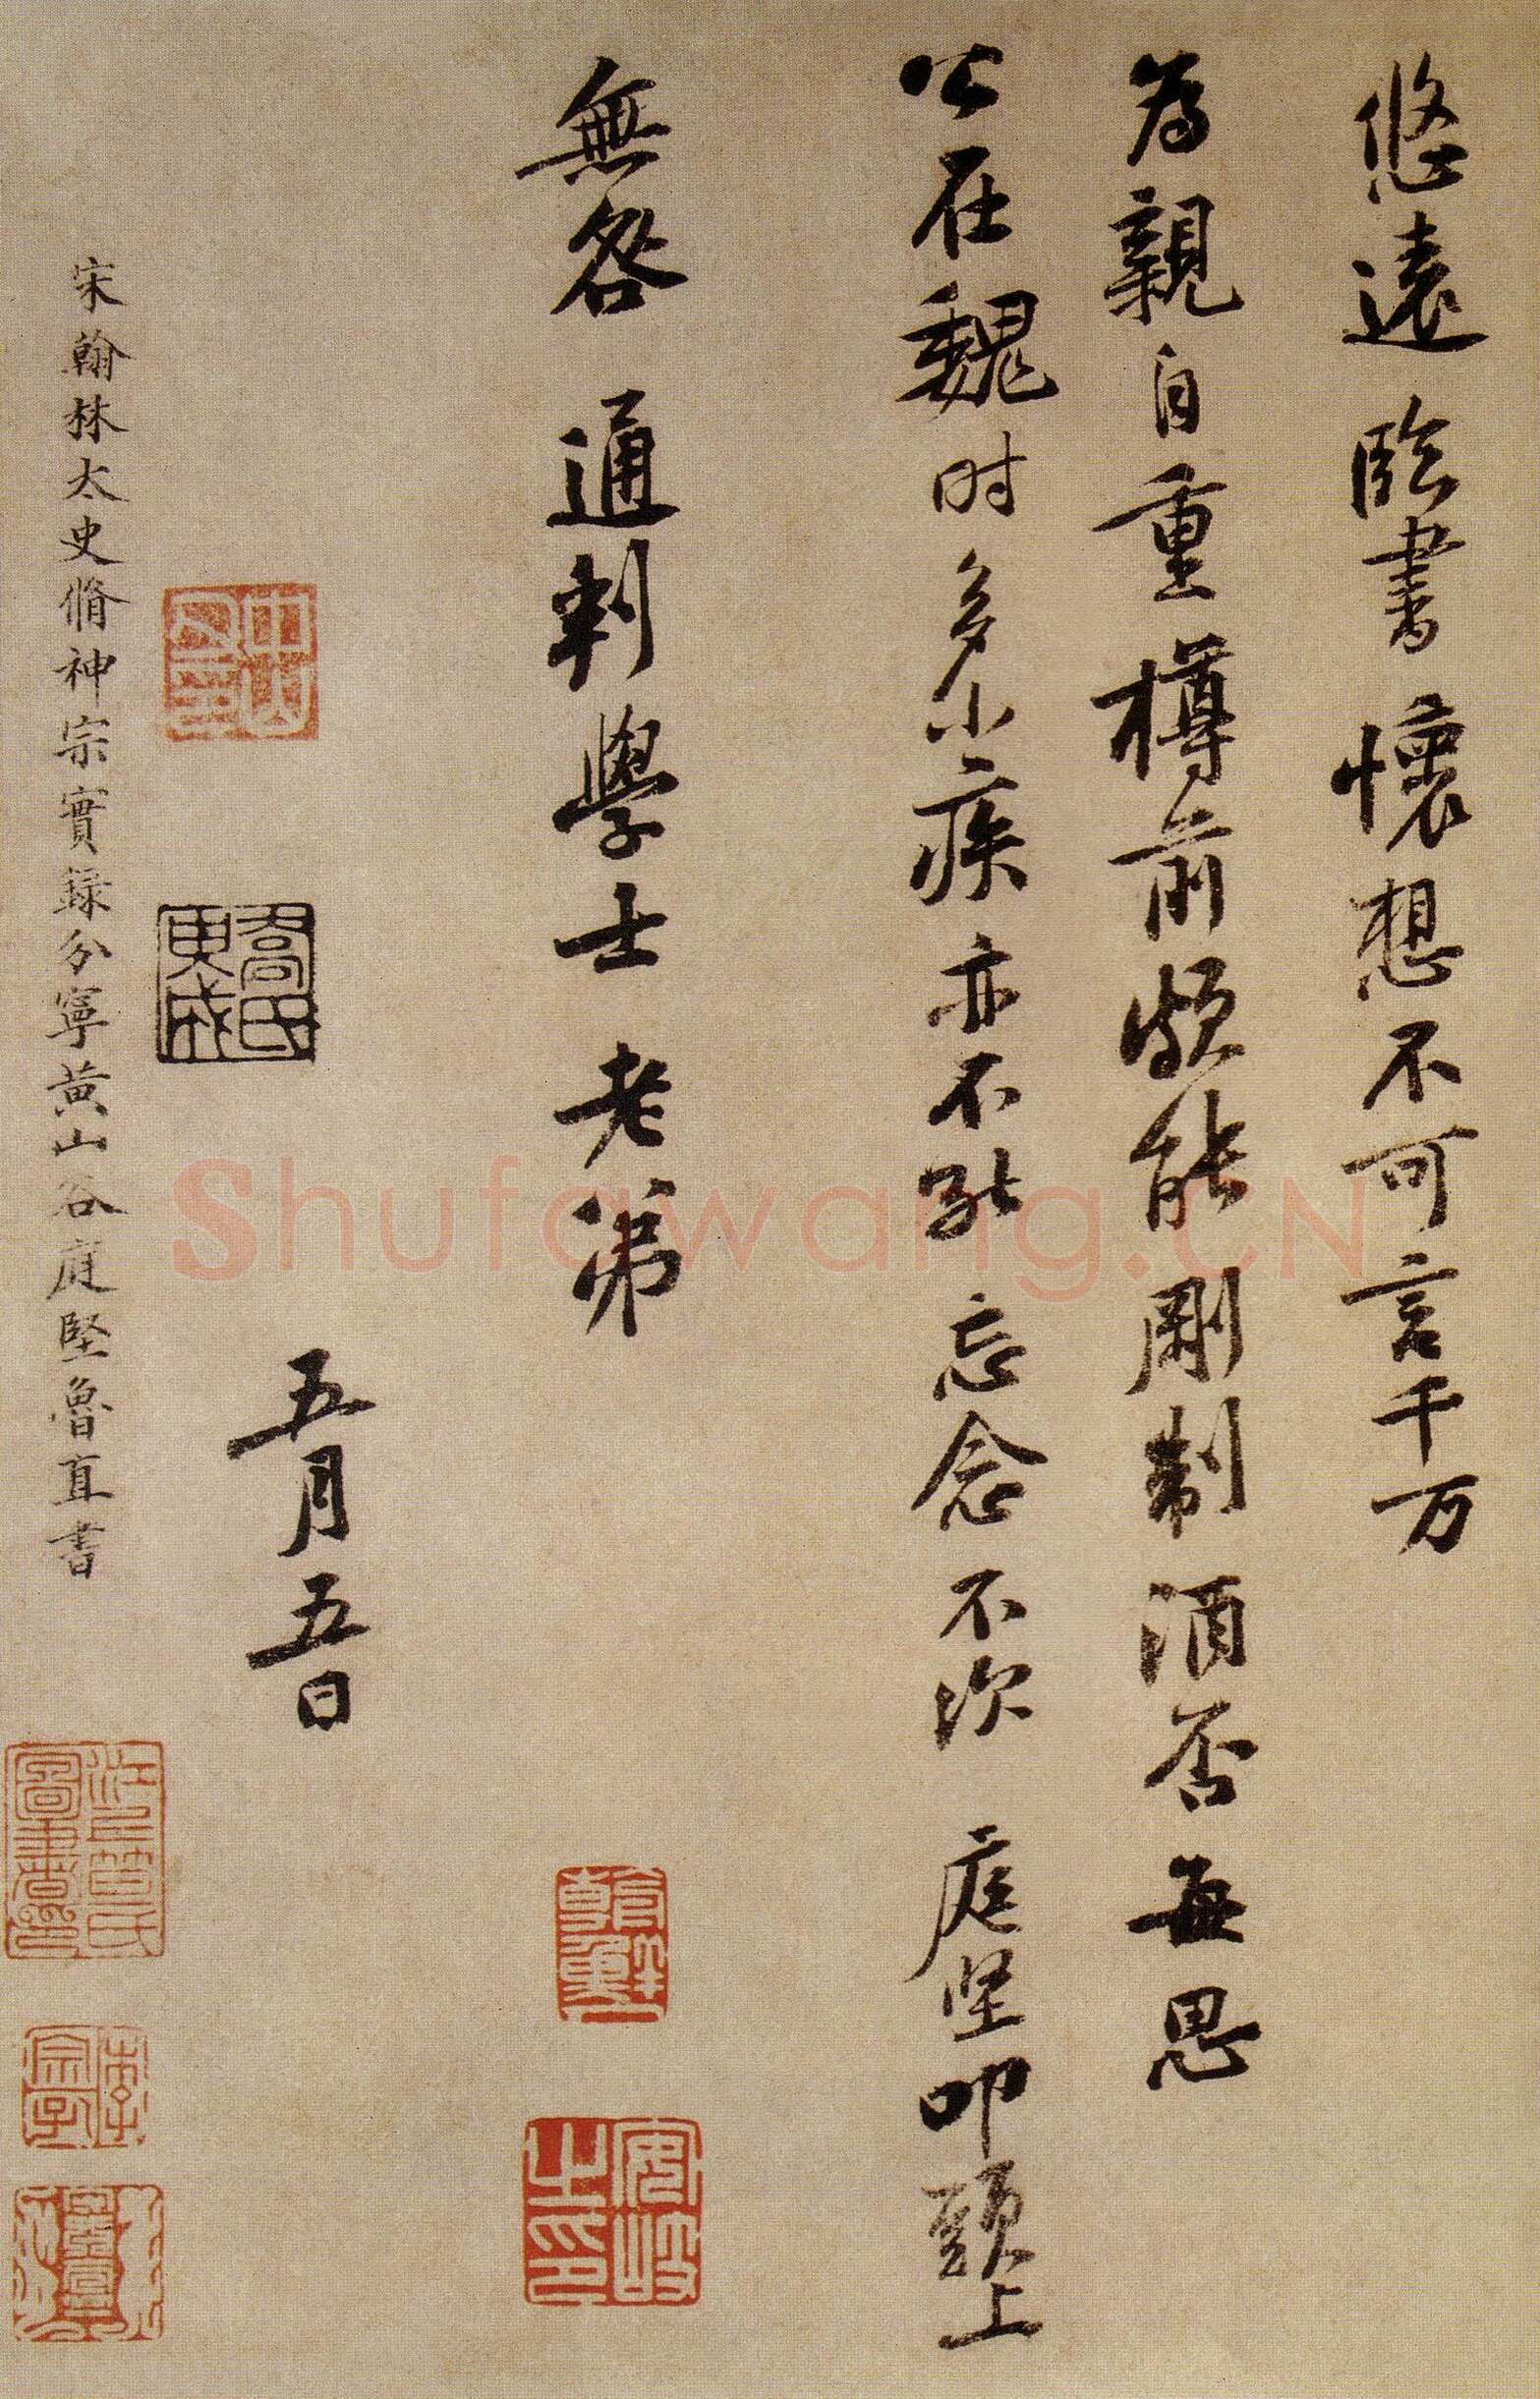 悠遠臨書懷想不可言千万
為親自重樽前頗能剛制酒否每思
公在魏时多小疾亦不能忘念不次 庭坚叩頭上
無咎通判學士老弟
五月五日
宋翰林太史脩神宗實録分寧黄山谷庭堅魯直書
喬氏
安岐
之印
Shufawang.CN